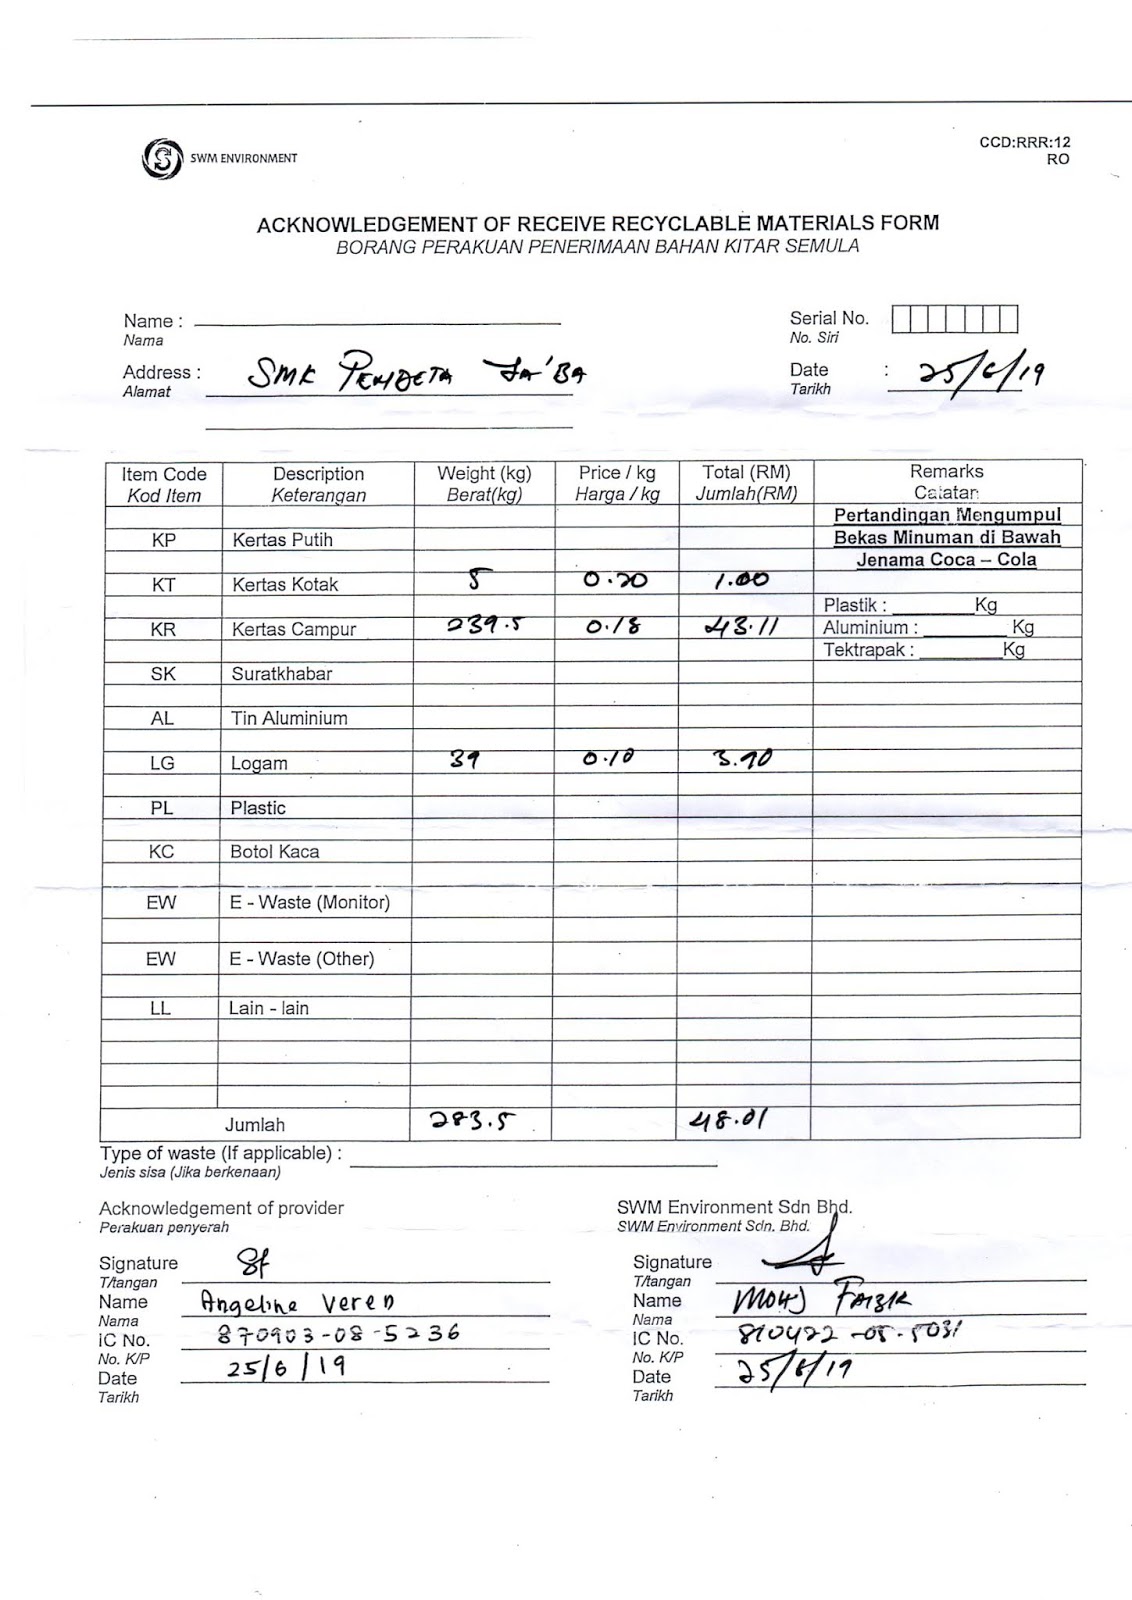 SWM ENVIRONMENT
CCD:RRR:12
RO
ACKNOWLEDGEMENT OF RECEIVE RECYCLABLE MATERIALS FORM
BORANG PERAKUAN PENERIMAAN BAHAN KITAR SEMULA
Name :
Nama
Serial No.
No. Siri
Address : SMK PENDETA ZA'BA
Alamat
Date : 25/6/19
Tarikh
Item Code Description Weight (kg) Price / kg Total (RM) Remarks
Kod Item Keterangan Berat(kg) Harga / kg Jumlah(RM) Catatan
Pertandingan Mengumpul
KP Kertas Putih Bekas Minuman di Bawah
Jenama Coca – Cola
KT Kertas Kotak 5 0.20 1.00
Plastik : ________Kg
KR Kertas Campur 239.5 0.18 43.11 Aluminium : ________ Kg
Tektrapak : ________Kg
SK Suratkhabar
AL Tin Aluminium
LG Logam 39 0.10 3.90
PL Plastic
KC Botol Kaca
EW E - Waste (Monitor)
EW E - Waste (Other)
LL Lain - lain
Jumlah 283.5 48.01
Type of waste (If applicable) :
Jenis sisa (Jika berkenaan)
Acknowledgement of provider
Perakuan penyerah
Signature
T/tangan
Name Angeline Veren
Nama
IC No. 870903-08-5236
No. K/P
Date 25/6/19
Tarikh
SWM Environment Sdn Bhd.
SWM Environment Sdn. Bhd.
Signature
T/tangan
Name MOHD FAIZIK
Nama
IC No. 810422-05-5031
No. K/P
Date 25/6/19
Tarikh